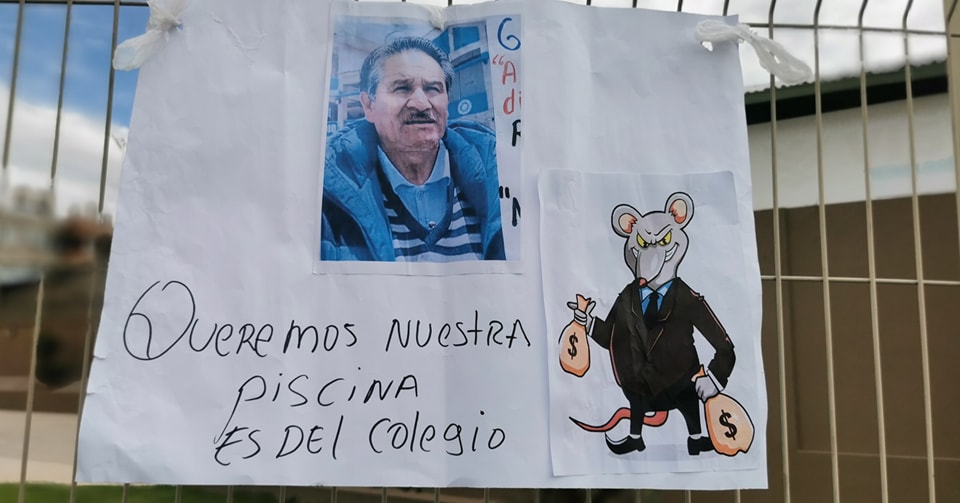 G
"A
di
"N
Queremos nuestra
piscina
es del colegio
$
$